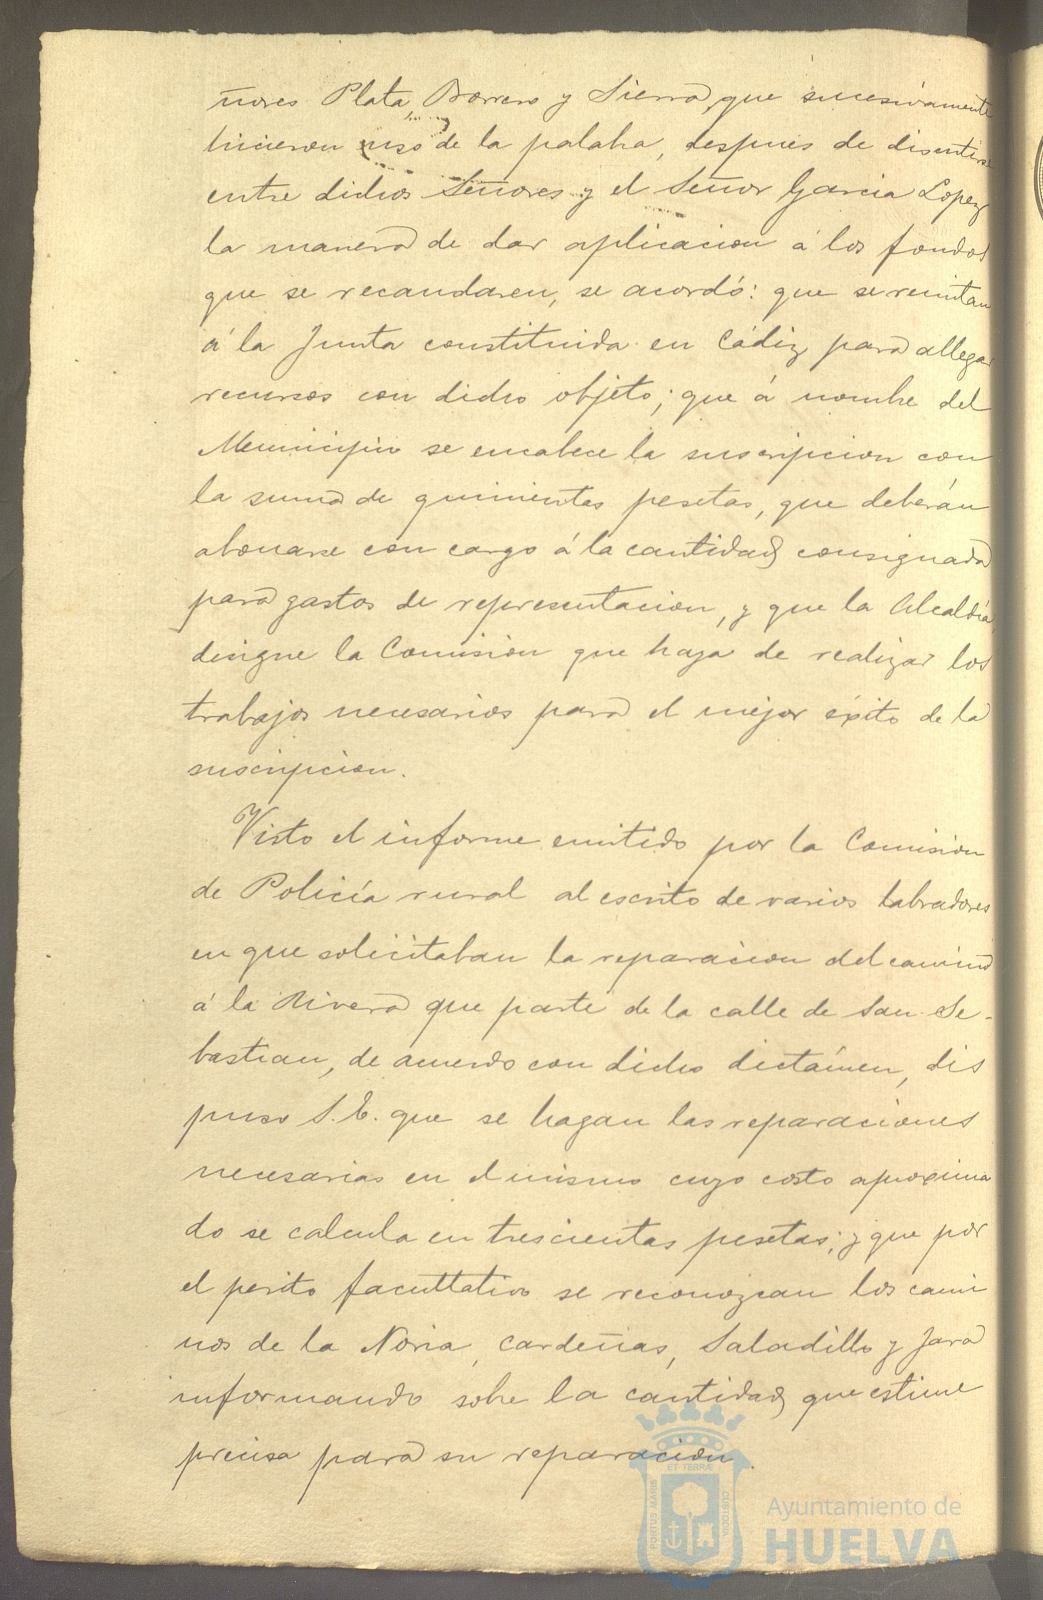 ñores Plata, Borrero y Sierra, que sucesivamente
hicieron uso de la palabra, despues de discutirse
entre dichos Señores y el Señor Garcia Lopez
la manera de dar aplicacion á los fondos
que se recaudaren, se acordó: que se remitan
á la Junta constituida en Cádiz para allegar
recursos con dicho objeto; que á nombre del
Municipio se encabece la suscripcion con
la suma de quinientas pesetas, que deberán
abonarse con cargo á la cantidad consignada
para gastos de representacion, y que la Alcaldía
designe la Comision que haya de realizar los
trabajos necesarios para el mejor éxito de la
suscripcion.
Visto el informe emitido por la Comision
de Policía rural al escrito de varios labradores
en que solicitaban la reparacion del camino
á la Rivera que parte de la calle de San Se-
bastian, de acuerdo con dicho dictámen, dis
puso S.E. que se hagan las reparaciones
necesarias en el mismo cuyo costo aproxima
do se calcula en trescientas pesetas; y que por
el perito facultativo se reconozcan los cami
nos de la Noria, Cardeñas, Saladillo y Jara
informando sobre la cantidad que estime
precisa para su reparacion.
PORTUS MARIS
ET TERRÆ
CUSTODIA
Ayuntamiento de
HUELVA